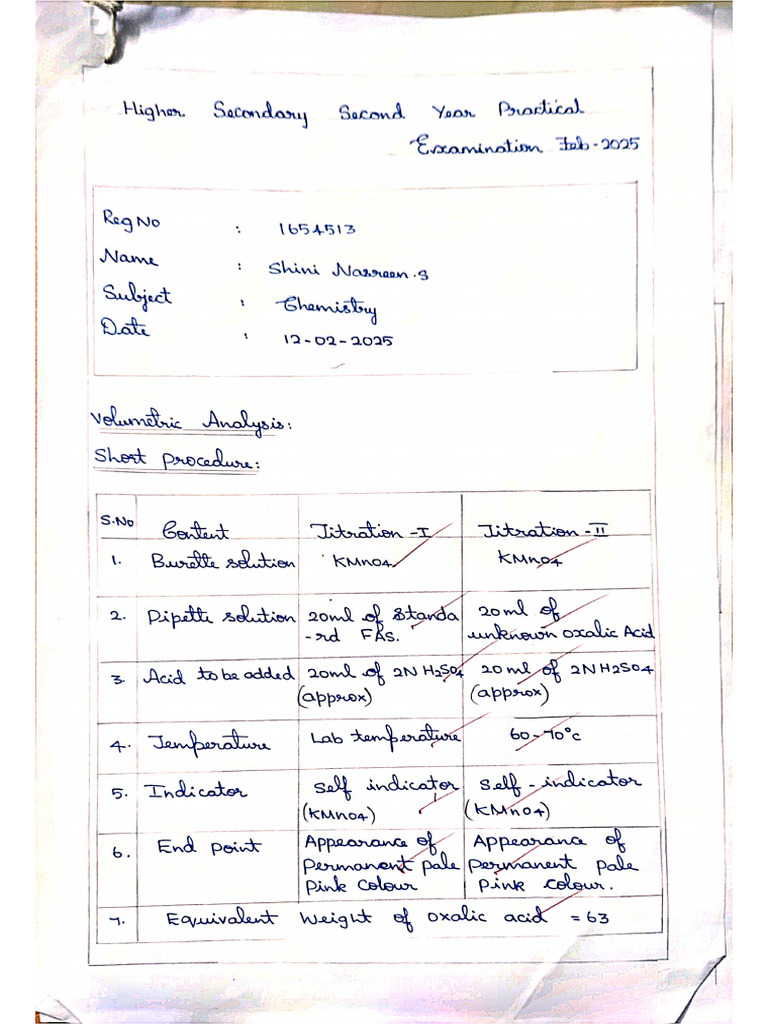 Higher Secondary Second Year Practical
Examination Feb-2025
Reg No : 1654513
Name : Shini Nasreen.S
Subject : Chemistry
Date : 12-02-2025
Volumetric Analysis:
Short procedure:
S.No Content Titration -I Titration -II
1. Burette solution KMnO4 KMnO4
2. Pipette solution 20ml of Standa 20ml of
-rd FAS. unknown oxalic Acid
3. Acid to be added 20ml of 2N H2SO4 20 ml of 2NH2SO4
(approx) (approx)
4. Temperature Lab temperature 60-70°c
5. Indicator Self indicator Self - indicator
(KMnO4) (KMnO4)
6. End point Appearance of Appearance of
Permanent pale Permanent pale
Pink Colour Pink colour.
7. Equivalent Weight of oxalic acid = 63